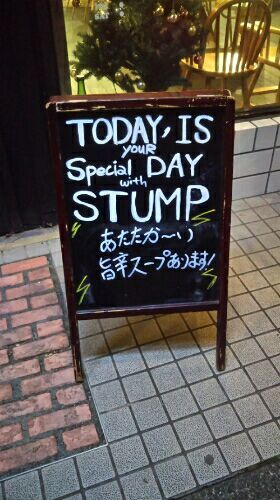 TODAY, IS
YOUR
Special DAY
with
STUMP
あたたか〜い
旨辛スープあります!